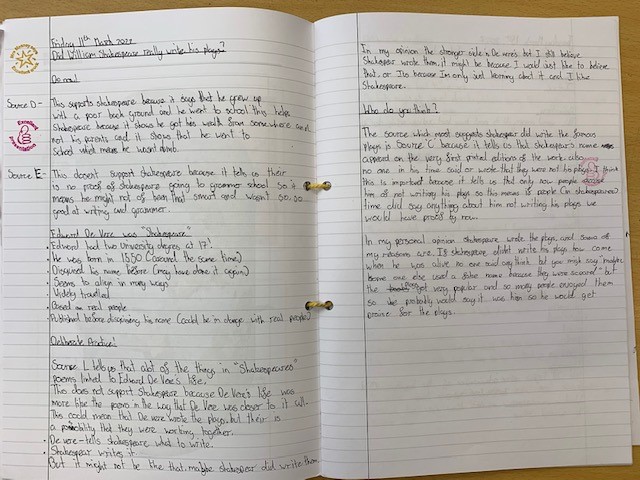 Friday 11th March 2022
Did William Shakespeare really write his plays?
Do now!
Source D-
This supports shakespeare because it says that he grew up
with a poor back ground and he went to school this helps
Shakespeare because it shows he got his wealth from somewhere and
not his parents and it shows that he went to
school what means he wasnt dumb.
Excellent Presentation
Source E-
This doesent support shakespeare because it tells us their
is no proof of Shakespeare going to grammer school so it
means he might not of been that smart and wasnt so, so
good at writing and grammer.
Edward De Vere was "Shakespeare"
• Edward had two University degrees at 17!
• He was born in 1550 (around the same time)
• Disguised his name before (may have done it again)
• Seems to align in many ways
• Widely travelled
• Based on real people
• Published before disguising his name (could be in charge with real people)
Deliberate Practice!
Source L tells us that alot of the things in "Shakespeares"
poems linked to Edward De Vere's life.
This does not support Shakespeare because De Vere's life was
more like the poems in the way that De Vere was closer to it all.
This could mean that De vere wrote the plays, but their is
a possibility that they were working together.
• De vere - tells shakespeare what to write.
• Shakespear writes it.
But it might not be like that, maybe shakespear did write them.
In my opinion the stronger side is De vere's but I still believe
Shakespear wrote them, it might be because I would just like to believe
that, or its because Im only just learning about it and I like
Shakespeare.
Who do you think?
The source which most suggests shakespear did write the famous
plays is Source C because it tells us that shakespear's name
appeared on the very first printed editions of the work also
no one in his time said or wrote that they were not his plays. I think
this is important because it tells us that only now people
him of not writing his plays so this means if people (in shakespeares)
time did say anything about him not writing his plays we
would have proof by now.
In my personal opinion Shakespeare wrote the plays, and some of
my reasons are. If shakespeare didnt write his plays how come
when he was alive no one said anything but you might say "maybe
some one else used a false name because they were scared" but
the got very popular and so many people enjoyed them
so we probably would say it was him so he would get
praise for the plays.